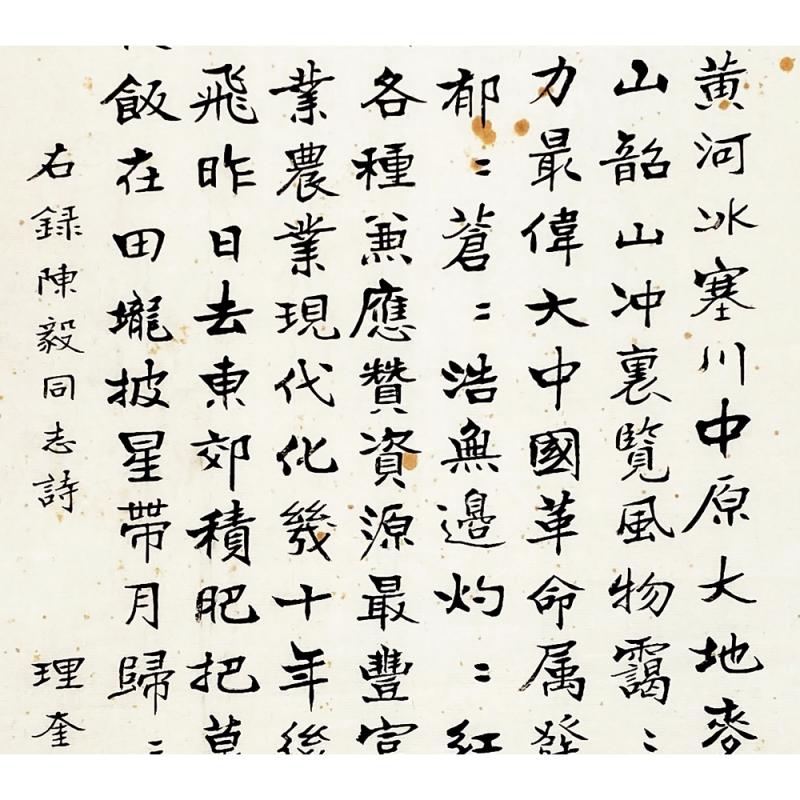 黄河冰塞川中原大地麥
山韶山冲裏覽風物靄:
力最偉大中國革命属發
郁:蒼:浩無邊灼:紅
各種兼應贊資源最豐富
業農業現代化幾十年後
飛昨日去東郊積肥把草
飯在田壠披星帶月歸:
右録陳毅同志詩
理奎